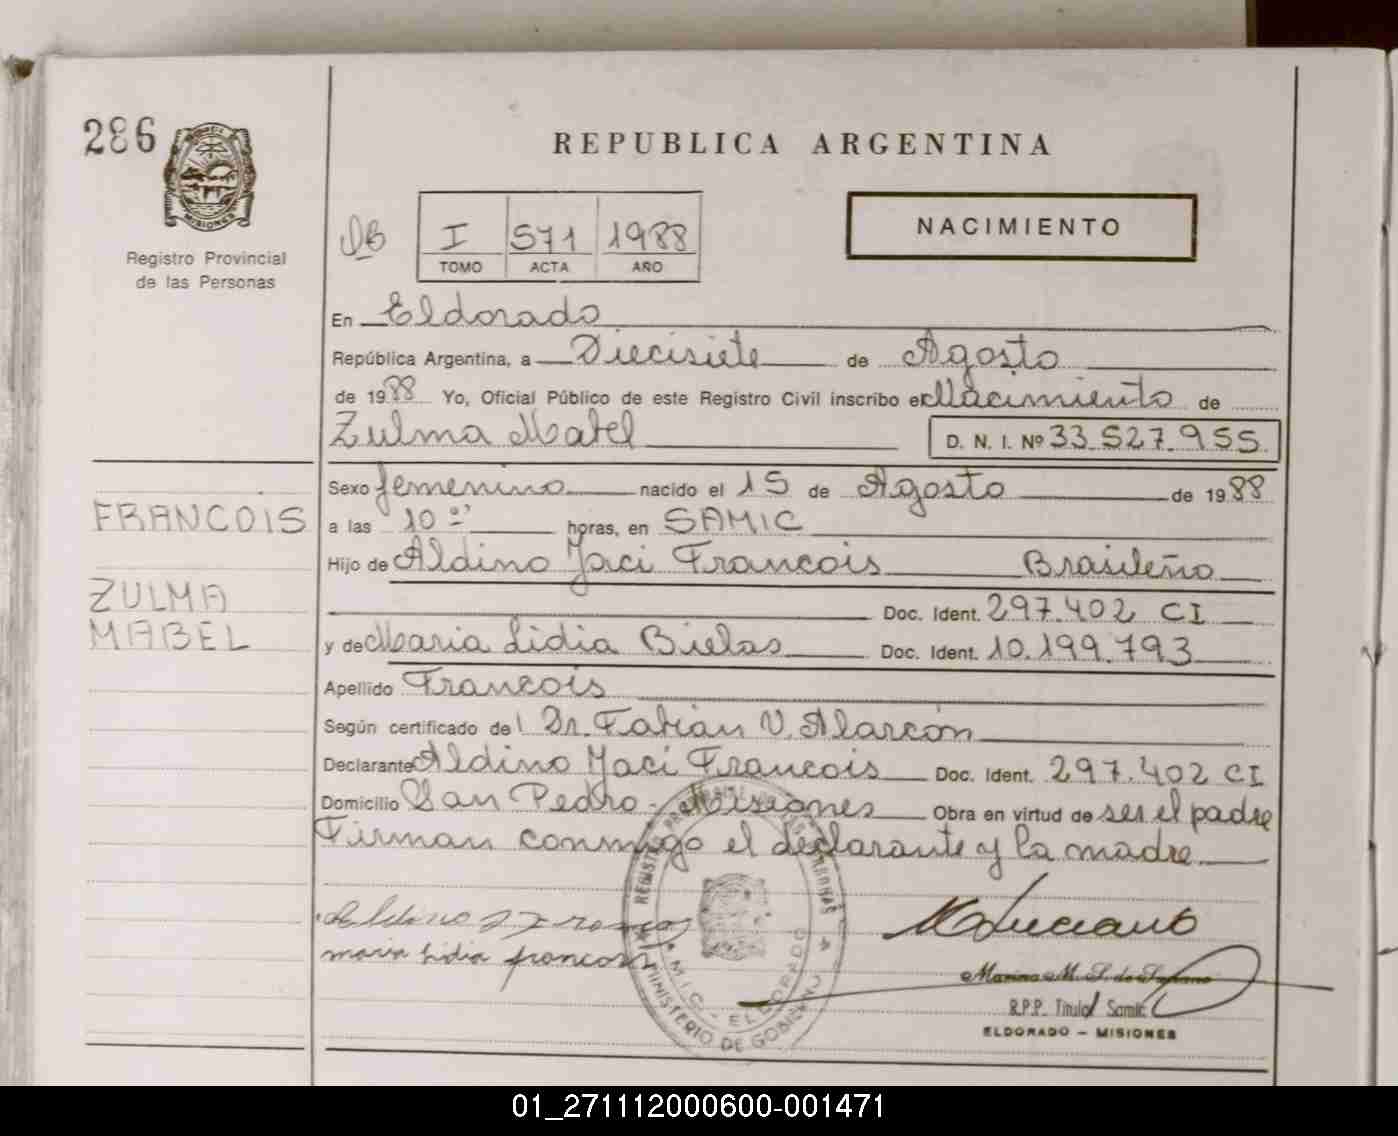 286
REPUBLICA ARGENTINA
MISIONES
Registro Provincial
de las Personas
I 571 1988
TOMO ACTA AÑO
NACIMIENTO
En Eldorado
República Argentina, a Diecisiete de Agosto
de 1988 Yo, Oficial Público de este Registro Civil inscribo el Nacimiento de
Zulma Mabel D. N. I. Nº 33.527.955
Sexo femenino nacido el 15 de Agosto de 1988
FRANCOIS
a las 10 horas, en SAMIC
Hijo de Aldino Jaci Francois Brasileño
ZULMA
Doc. Ident. 297.402 CI
MABEL
y de Maria Lidia Bielas Doc. Ident. 10.199.793
Apellido Francois
Según certificado del Dr. Fabián V. Alarcón
Declarante Aldino Jaci Francois Doc. Ident. 297.402 CI
Domicilio San Pedro - Misiones Obra en virtud de ser el padre
Firman conmigo el declarante y la madre
Aldino J Francois
maria lidia francois
Marina M. S. de
R.P.P. Titular Samic
ELDORADO - MISIONES
MINISTERIO DE GOBIERNO
ELDORADO
01_271112000600-001471